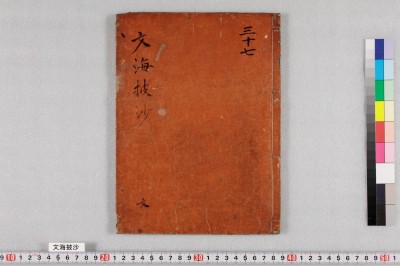 三十七
文海披沙
文海披沙